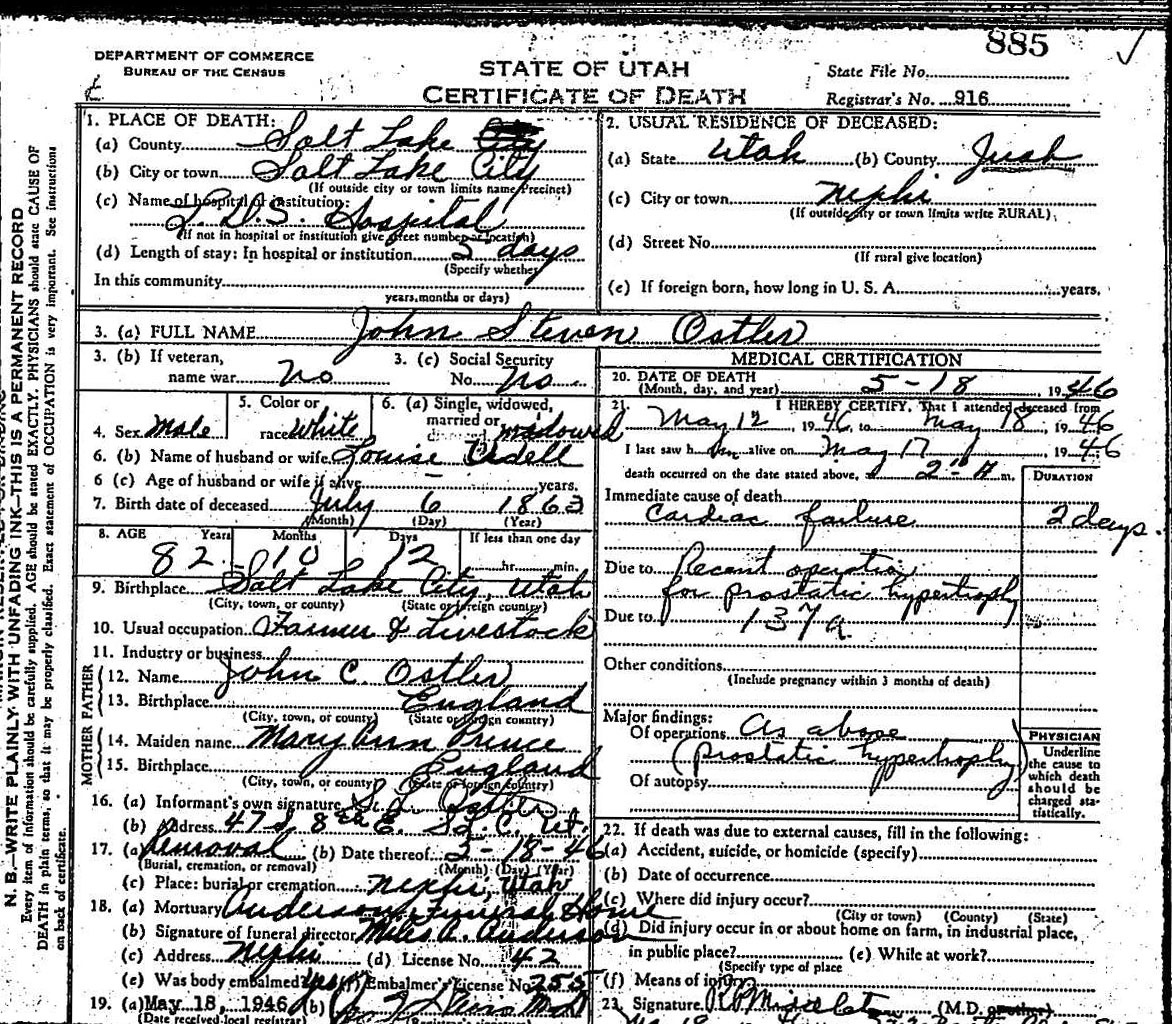 885
DEPARTMENT OF COMMERCE
BUREAU OF THE CENSUS
STATE OF UTAH
CERTIFICATE OF DEATH
State File No.
Registrar's No. 916
N. B.—WRITE PLAINLY WITH UNFADING INK—THIS IS A PERMANENT RECORD
Every item of information should be carefully supplied. AGE should be stated EXACTLY. PHYSICIANS should state CAUSE OF
DEATH in plain terms, so that it may be properly classified. Exact statement of OCCUPATION is very important. See instructions
on back of certificate.
1. PLACE OF DEATH:
(a) County Salt Lake
(b) City or town Salt Lake City
(If outside city or town limits name Precinct)
(c) Name of hospital or institution:
L. D. S. Hospital
(If not in hospital or institution give street number or location)
(d) Length of stay: In hospital or institution 5 days
(Specify whether
In this community
years, months or days)
2. USUAL RESIDENCE OF DECEASED:
(a) State Utah (b) County Juab
(c) City or town Nephi
(If outside city or town limits write RURAL)
(d) Street No.
(If rural give location)
(e) If foreign born, how long in U. S. A. years.
3. (a) FULL NAME John Steven Ostler
3. (b) If veteran, name war no
3. (c) Social Security No. no
4. Sex Male
5. Color or race White
6. (a) Single, widowed, married or divorced widowed
6. (b) Name of husband or wife Louise Udell
6 (c) Age of husband or wife if alive – years.
7. Birth date of deceased July 6 1863
(Month) (Day) (Year)
8. AGE Years Months Days If less than one day
82 10 12 hr. min.
9. Birthplace Salt Lake City, Utah
(City, town, or county) (State or foreign country)
10. Usual occupation Farmer & Livestock
11. Industry or business
FATHER
12. Name John C. Ostler
13. Birthplace England
(City, town, or county) (State or foreign country)
MOTHER
14. Maiden name Mary Ann Prince
15. Birthplace England
(City, town, or county) (State or foreign country)
16. (a) Informant's own signature Ostler
(b) Address 47 S. 8th E. S. L. C. Ut.
17. (a) Removal (b) Date thereof 5-18-46
(Burial, cremation, or removal) (Month) (Day) (Year)
(c) Place: burial or cremation Nephi, Utah
18. (a) Mortuary Anderson Funeral Home
(b) Signature of funeral director Miles A. Anderson
(c) Address Nephi (d) License No. 42
(e) Was body embalmed yes (f) Embalmer's License No. 255
19. (a) May 18, 1946 (b)
(Date received local registrar) (Registrar's signature)
MEDICAL CERTIFICATION
20. DATE OF DEATH
(Month, day, and year) 5-18, 1946
21. I HEREBY CERTIFY, That I attended deceased from
May 12, 1946, to May 18, 1946
I last saw him alive on May 17, 1946
death occurred on the date stated above, a 2 A m.
DURATION
Immediate cause of death
Cardiac failure 2 days.
Due to Recent operation
for prostatic hypertrophy
Due to 137a
Other conditions
(Include pregnancy within 3 months of death)
Major findings:
Of operations As above
(prostatic hypertrophy)
Of autopsy
PHYSICIAN
Underline
the cause to
which death
should be
charged sta-
tistically.
22. If death was due to external causes, fill in the following:
(a) Accident, suicide, or homicide (specify)
(b) Date of occurrence
(c) Where did injury occur?
(City or town) (County) (State)
(d) Did injury occur in or about home on farm, in industrial place,
in public place? (e) While at work?
(Specify type of place
(f) Means of injury
23. Signature (M.D. or other)